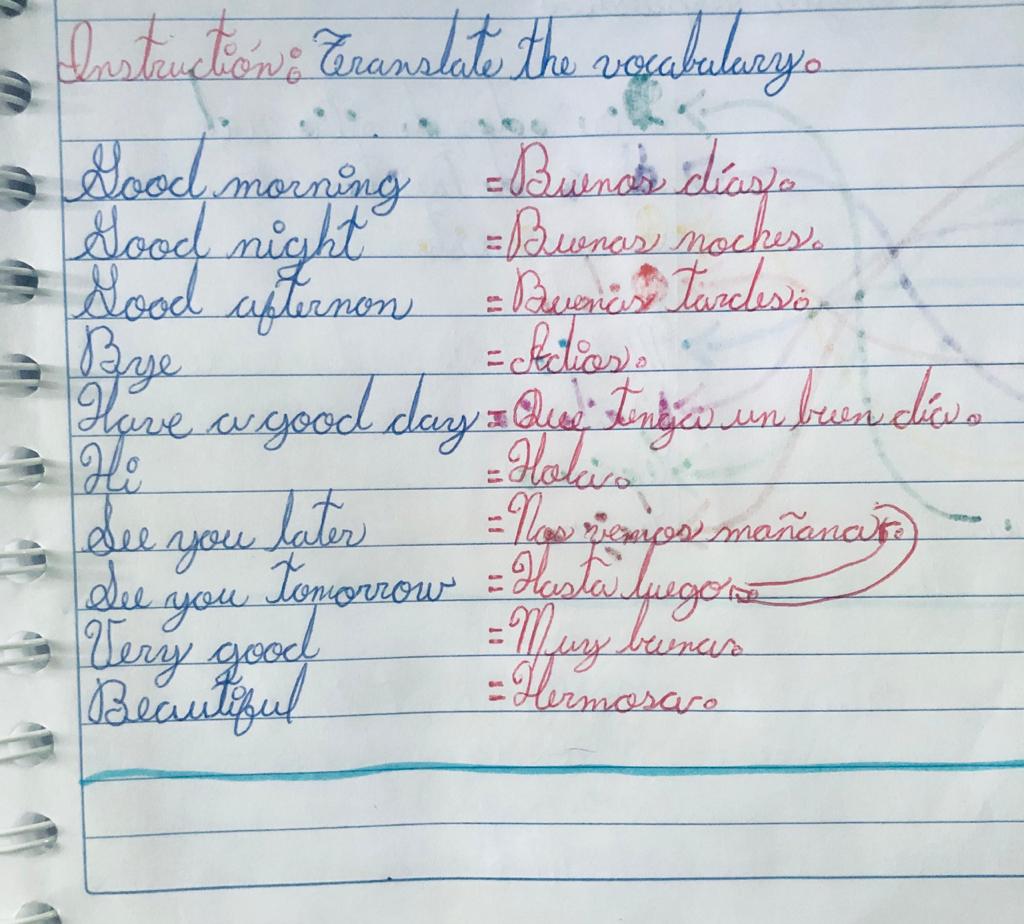 Instructión: Translate the vocabulary.
Good morning = Buenos días.
Good night = Buenas noches.
Good afternon = Buenas tardes.
Bye = Adios.
Have a good day = Que tenga un buen día.
Hi = Hola.
See you later = Nos vemos mañana.
See you tomorrow = Hasta luego.
Very good = Muy buena.
Beautiful = Hermosa.